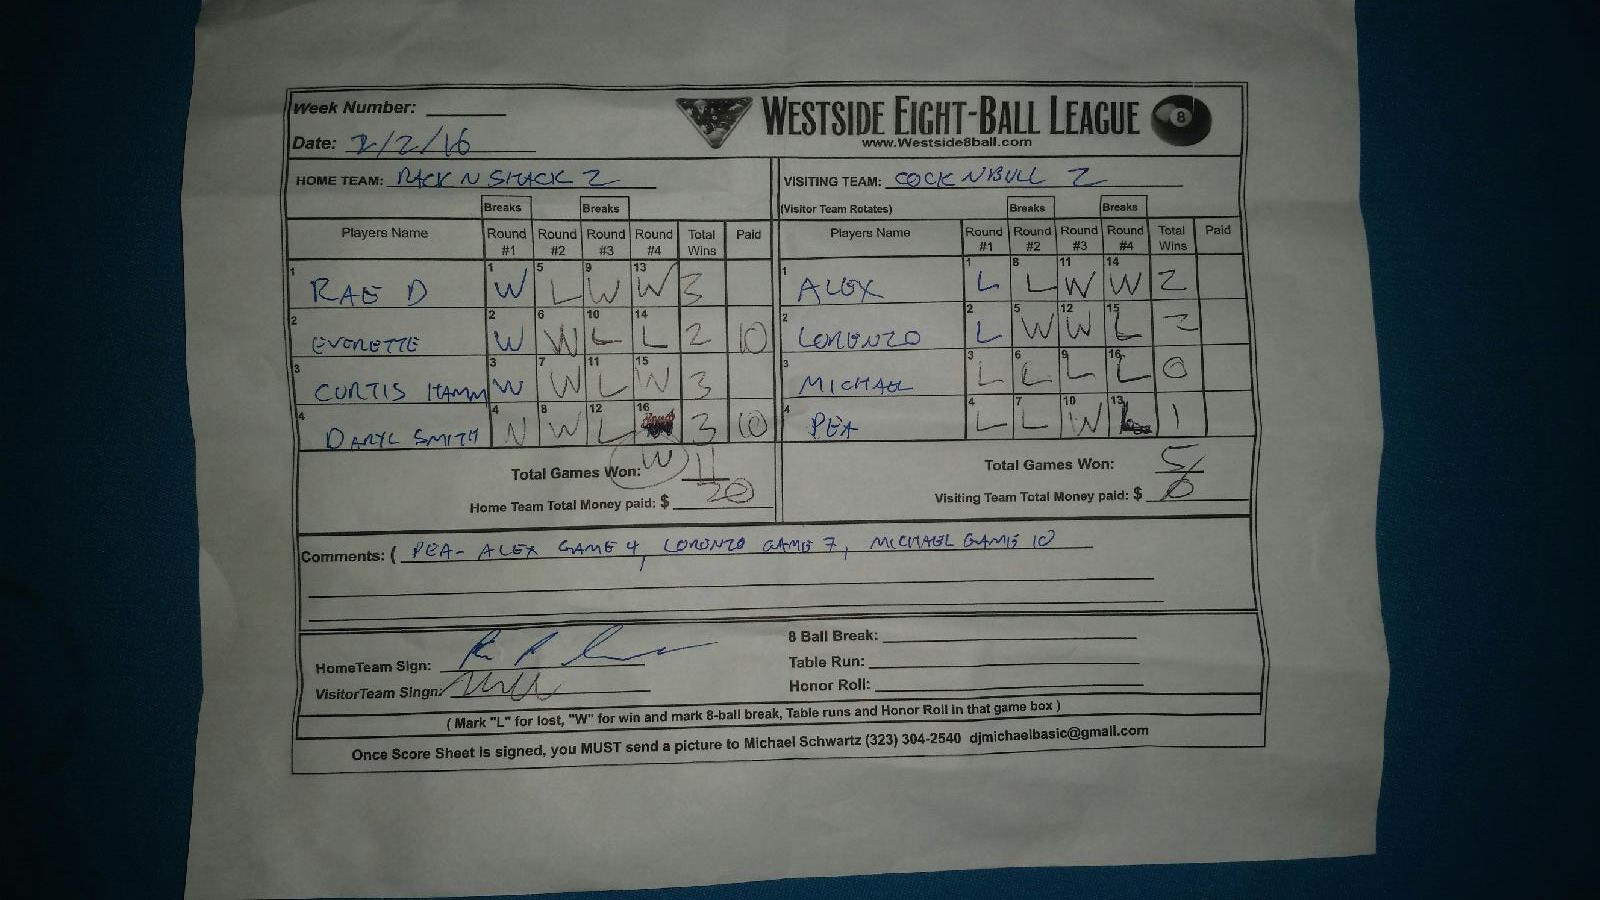 Week Number:
WESTSIDE EIGHT-BALL LEAGUE 8
www.Westside8ball.com
Date: 2/2/16
HOME TEAM: RACK N SHACK 2
VISITING TEAM: COCK N BULL 2
Breaks Breaks (Visitor Team Rotates) Breaks Breaks
Players Name Round #1 Round #2 Round #3 Round #4 Total Wins Paid Players Name Round #1 Round #2 Round #3 Round #4 Total Wins Paid
1 RAE D 1 W 5 L 9 W 13 W 3 1 ALEX 1 L 8 L 11 W 14 W 2
2 EVERETTE 2 W 6 W 10 L 14 L 2 10 2 LORENZO 2 L 5 W 12 W 15 L 2
3 CURTIS HAMM 3 W 7 W 11 L 15 W 3 3 MICHAEL 3 L 6 L 9 L 16 L 0
4 DARYL SMITH 4 W 8 W 12 L 16 3 10 4 PEA 4 L 7 L 10 W 13 L 1
Total Games Won: W 11 Total Games Won: 5
Home Team Total Money paid: $ 20 Visiting Team Total Money paid: $ 0
Comments: ( PEA- ALEX GAME 4, LORENZO GAME 7, MICHAEL GAME 10
8 Ball Break:
HomeTeam Sign:
Table Run:
VisitorTeam Singn:
Honor Roll:
( Mark "L" for lost, "W" for win and mark 8-ball break, Table runs and Honor Roll in that game box )
Once Score Sheet is signed, you MUST send a picture to Michael Schwartz (323) 304-2540 djmichaelbasic@gmail.com